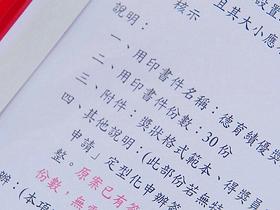 設置
且其大小應
核示
說明：
一、用印書件名稱：德育績優獎
二、用印書件份數：30份
三、附件：獎狀格式範本、得獎員
四、其他說明：(此部份若無特
申請」定型化申辦簽
整。原案已有簽
份數，無
辦：(本項